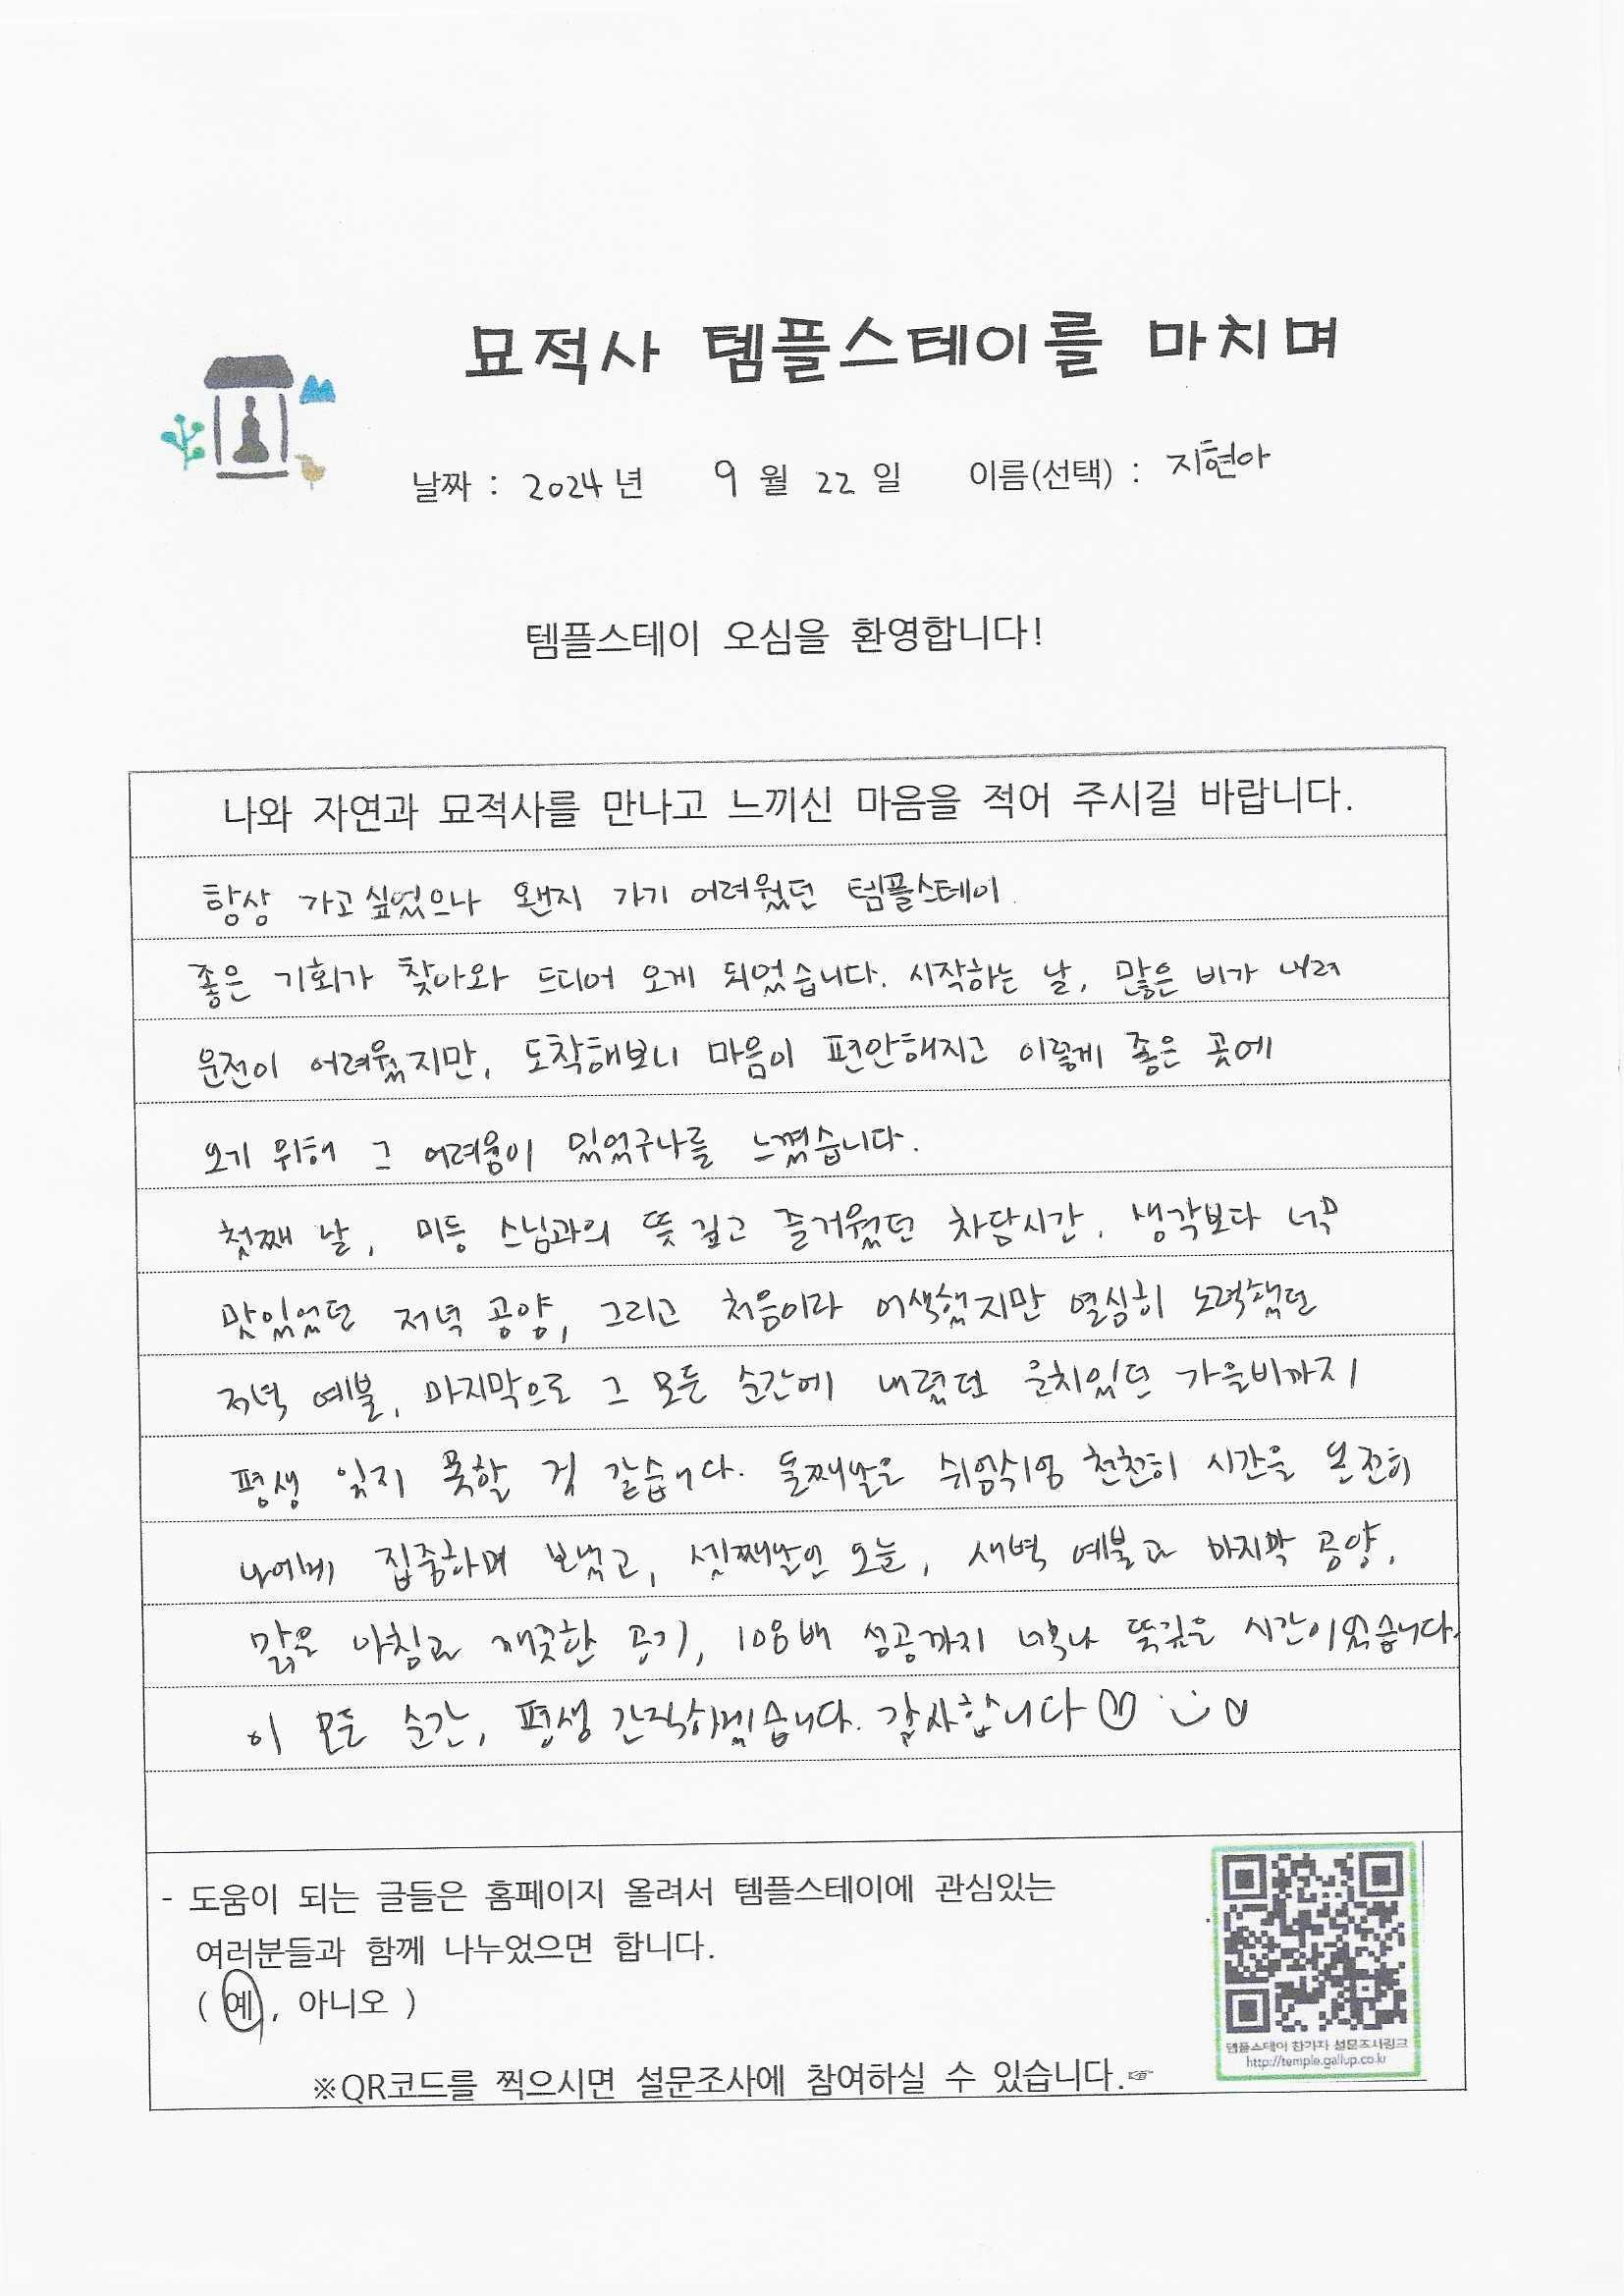 묘적사 템플스테이를 마치며
날짜 : 2024년 9월 22일 이름(선택) : 지현아
템플스테이 오심을 환영합니다!
나와 자연과 묘적사를 만나고 느끼신 마음을 적어 주시길 바랍니다.
항상 가고싶었으나 왠지 가기 어려웠던 템플스테이.
좋은 기회가 찾아와 드디어 오게 되었습니다. 시작하는 날, 많은 비가 내려
운전이 어려웠지만, 도착해보니 마음이 편안해지고 이렇게 좋은 곳에
오기 위해 그 어려움이 있었구나를 느꼈습니다.
첫째 날, 미등 스님과의 뜻 깊고 즐거웠던 차담시간. 생각보다 너무
맛있었던 저녁 공양, 그리고 처음이라 어색했지만 열심히 노력했던
저녁 예불, 마지막으로 그 모든 순간에 내렸던 운치있던 가을비까지
평생 잊지 못할 것 같습니다. 둘째날은 쉬엄쉬엄 천천히 시간을 온전히
나에게 집중하며 보냈고, 셋째날인 오늘, 새벽 예불과 마지막 공양,
맑은 아침과 깨끗한 공기, 108배 성공까지 너무나 뜻깊은 시간이었습니다.
이 모든 순간, 평생 간직하겠습니다. 감사합니다♡ :)♡
- 도움이 되는 글들은 홈페이지 올려서 템플스테이에 관심있는
여러분들과 함께 나누었으면 합니다.
( 예 , 아니오 )
템플스테이 참가자 설문조사링크
http://temple.gallup.co.kr
※QR코드를 찍으시면 설문조사에 참여하실 수 있습니다.☞